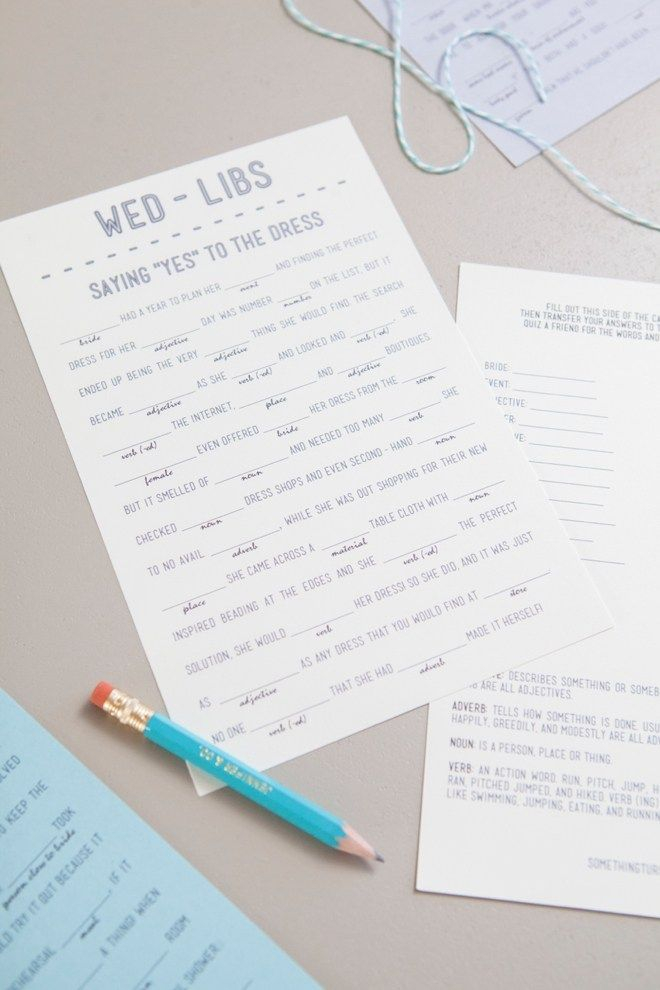 WED - LIBS
SAYING "YES" TO THE DRESS
HAD A YEAR TO PLAN HER AND FINDING THE PERFECT
bride event
DRESS FOR HER DAY WAS NUMBER ON THE LIST, BUT IT
adjective number
ENDED UP BEING THE VERY THING SHE WOULD FIND THE SEARCH
adjective
BECAME AS SHE AND LOOKED AND . SHE
adjective verb (-ed) verb (-ed)
THE INTERNET, AND BOUTIQUES.
verb (-ed) place adjective
EVEN OFFERED HER DRESS FROM THE
female bride room
BUT IT SMELLED OF AND NEEDED TOO MANY SHE
noun verb
CHECKED DRESS SHOPS AND EVEN SECOND-HAND
noun noun
TO NO AVAIL. , WHILE SHE WAS OUT SHOPPING FOR THEIR NEW
adverb
SHE CAME ACROSS A TABLE CLOTH WITH
place material noun
INSPIRED BEADING AT THE EDGES AND SHE THE PERFECT
verb (-ed)
SOLUTION, SHE WOULD HER DRESS! SO SHE DID, AND IT WAS JUST
verb
AS AS ANY DRESS THAT YOU WOULD FIND AT
adjective store
NO ONE THAT SHE HAD MADE IT HERSELF!
verb (-ed) adverb
FILL OUT THIS SIDE OF THE
THEN TRANSFER YOUR ANSWERS TO
QUIZ A FRIEND FOR THE WORDS AND
BRIDE:
EVENT:
JECTIVE:
ER:
VE:
DESCRIBES SOMETHING OR SOMEB
ARE ALL ADJECTIVES.
ADVERB: TELLS HOW SOMETHING IS DONE. USU
HAPPILY, GREEDILY, AND MODESTLY ARE ALL ADV
NOUN: IS A PERSON, PLACE OR THING.
VERB: AN ACTION WORD. RUN, PITCH, JUMP, H
RAN, PITCHED JUMPED, AND HIKED. VERB (ING)
LIKE SWIMMING, JUMPING, EATING, AND RUNNIN
SOMETHINGTUR
JENNIFER & CO.
OLVED
O KEEP THE
TOOK
person close to bride
ULD TRY IT OUT BECAUSE IT
, IF IT
EHEARSAL
noun
A THING! WHEN
ROOM
L SHOWER.